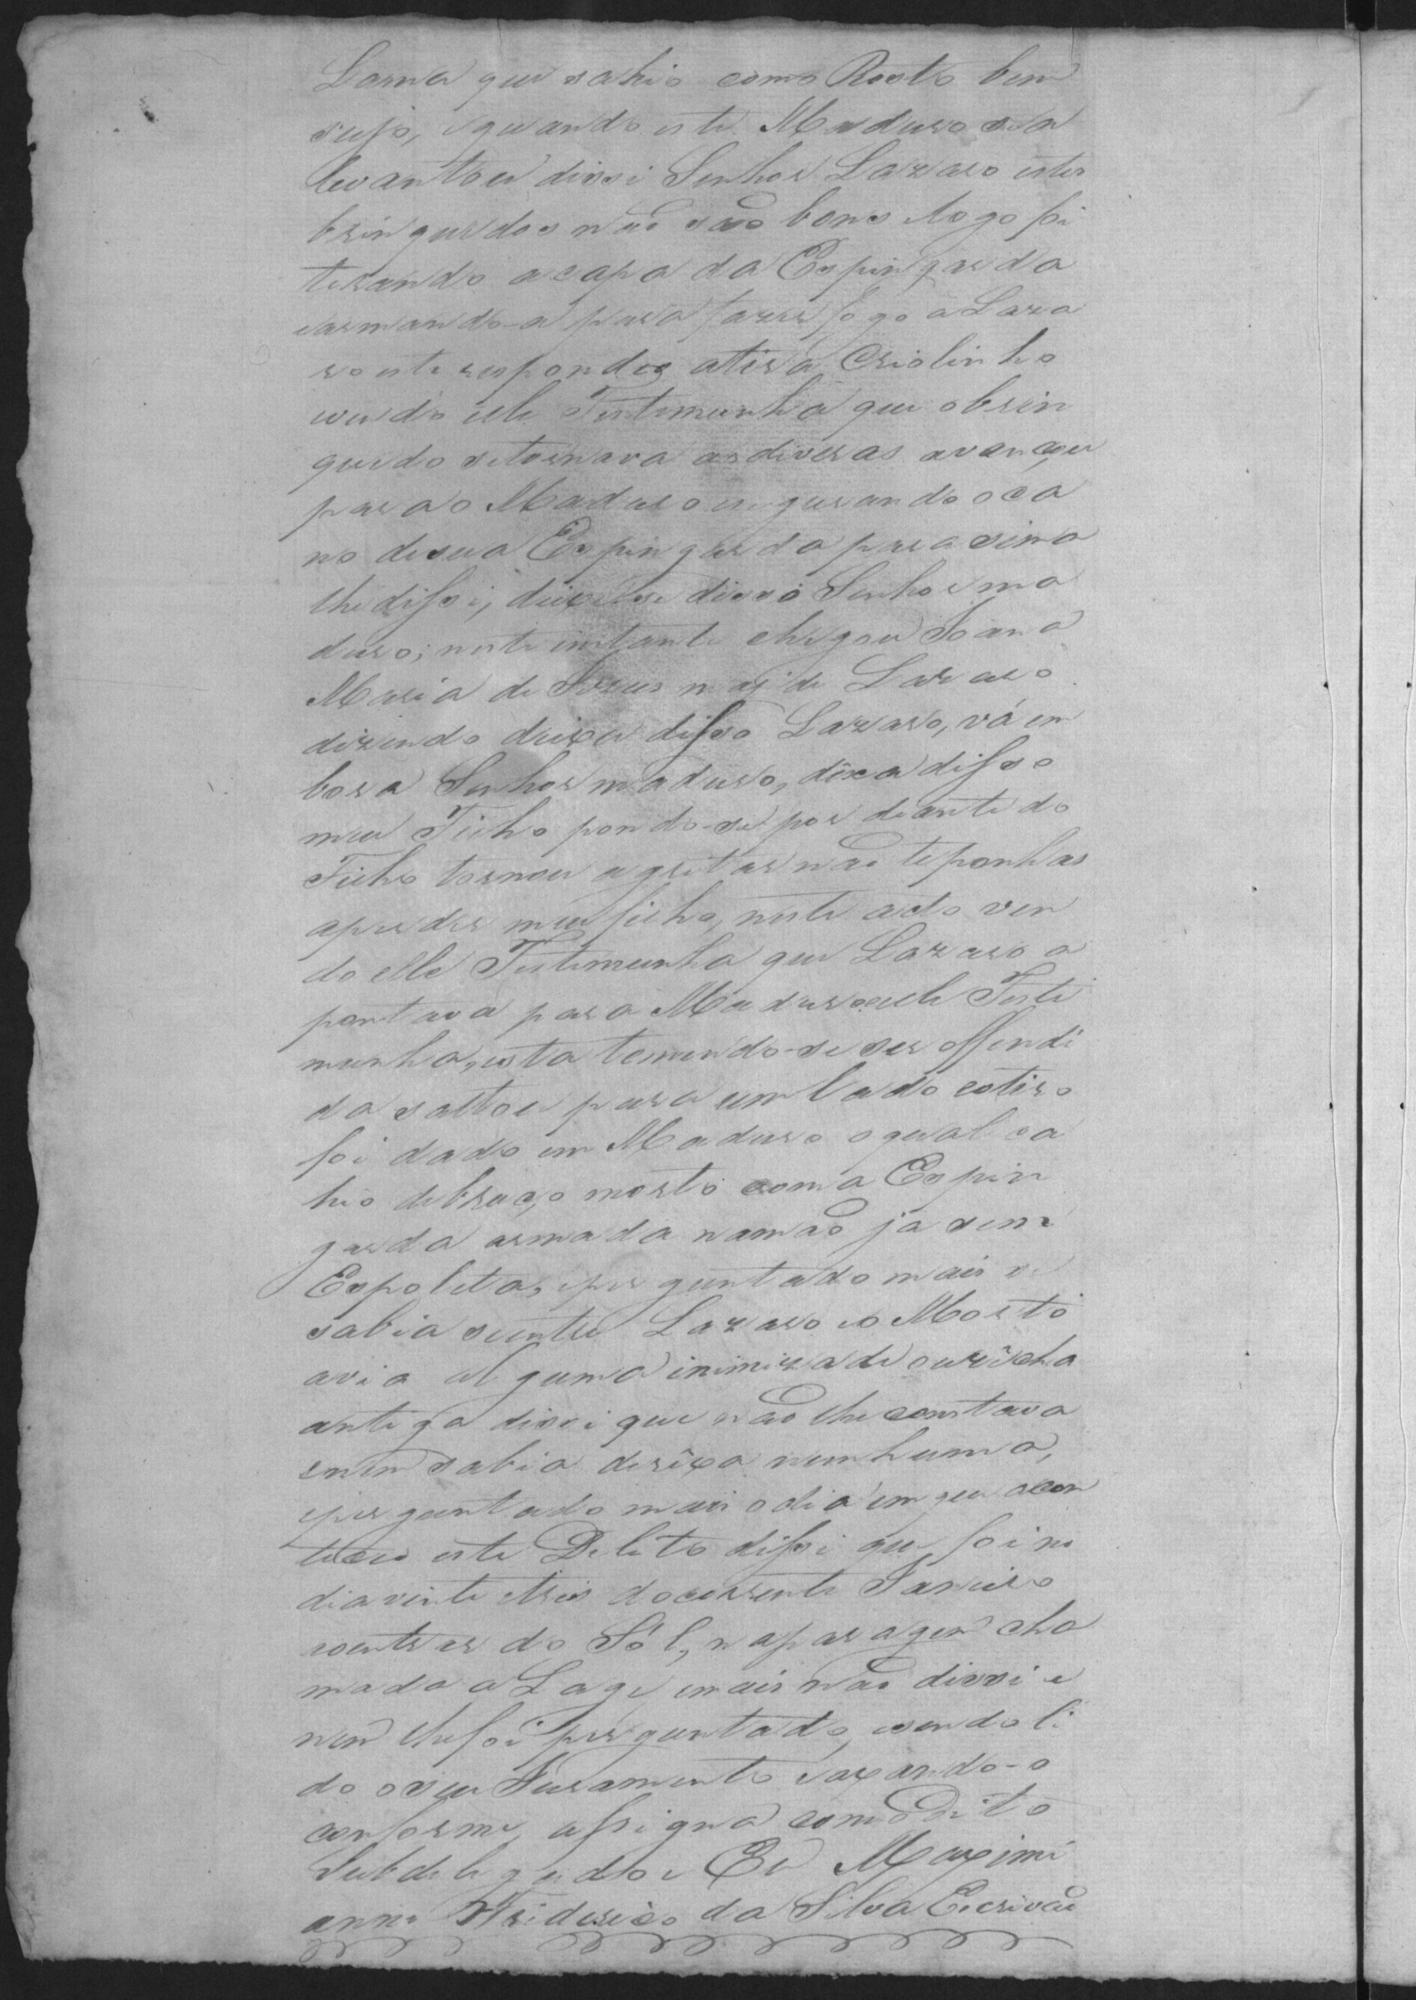 Lama que sahio com o Rosto bem
sujo, e quando este Maduro se a
levantou dissi Senhor Lazaro estes
bringuedos não são bons e logo foi
tirando a capa da Espingarda
earmando-a para fazer fogo a Laza
ro este respondeo atira Criolinho
vendo elle Testimunha que o brin
quedo setornava as diveras avançou
para o Maduro erguando o ca
no desua Espingarda para sima
lhe disse, deixe-se disso Senhor ma
duro; neste instante chegou Joana
Maria de Jesus mai de Lazaro
dizendo deixa disso Lazaro, vá em
bora Senhor maduro, dêxa disso
meu Filho pondo-se por deante do
Filho tornou a gritar não te ponhas
a perder meu filho, neste acto ven
do elle Testimunha que Lazaro a
pontava para Maduro eelle Testi
munha, esta temendo-se ser offendi
da saltou para um lado eotiro
foi dado em Maduro o qual ca
hio debruço morto com a Espin
garda armada namão ja sem
Espoleta, eperguntado mais se
sabia seentre Lazaro eo Morto
avia alguma inimizade ou rîcha
antiga dissi que não lhe constava
enem sabia derîxa nenhuma,
eperguntado mais odia em que acon
teceo este Delito dissi que foi no
dia vinte etreis docorrente Janeiro
aoentrar do Sól, naparagem cha
mada a Lage emais não dissi e
nem lhe foi perguntado, esendo li
do oseu Juramento eaxando-o
conforme assigna com o Dito
Subdelegado e Eu Maximi
anno Friderico da Silva Escrivão